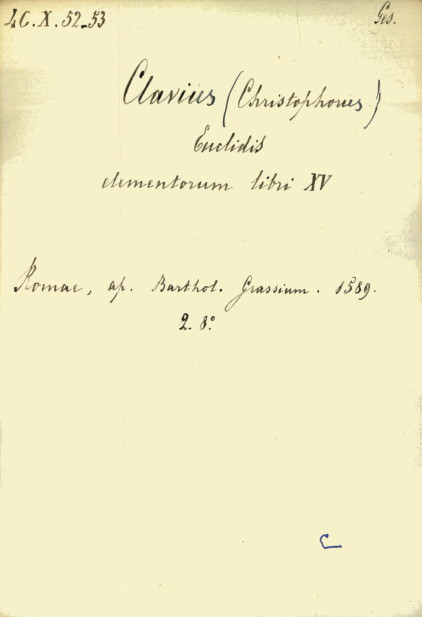 4C.X.52-53 Ges.
Clavius (Christophorus)
Euclidis
elementorum libri XV
Romae, ap. Barthol. Grassium. 1589.
2. 8°
C